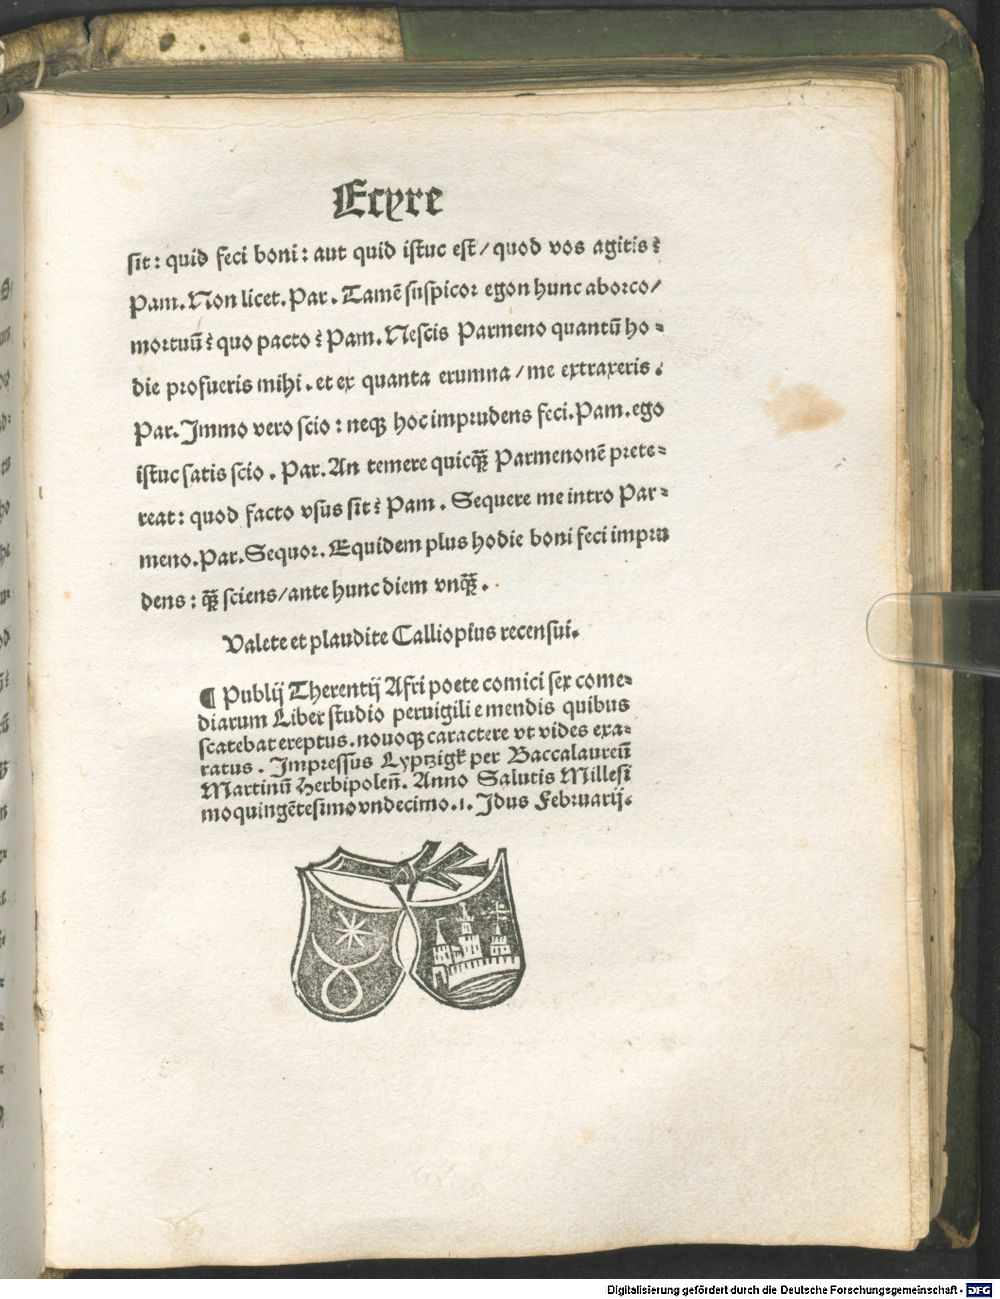 Ecyre
sit: quid feci boni: aut quid istuc est/quod vos agitis?
Pam. Non licet. Par. Tamē suspicor egon hunc ab orco/
mortuū? quo pacto? Pam. Nescis Parmeno quantū ho-
die profueris mihi. et ex quanta erumna/me extraxeris.
Par. Immo vero scio: neqꝫ hoc imprudens feci. Pam. ego
istuc satis scio. Par. An temere quicq̄ꝫ Parmenonē prete-
reat: quod facto vsus sit? Pam. Sequere me intro Par-
meno. Par. Sequor. Equidem plus hodie boni feci impru
dens: q̄ꝫ sciens/ante hunc diem vnq̄ꝫ.
Valete et plaudite Calliopius recensui.
¶ Publij Therentij Afri poete comici sex come-
diarum Liber studio pervigili e mendis quibus
scatebat ereptus. nouoqꝫ caractere vt vides exa-
ratus. Impressus Lyptzigk per Baccalaureū
Martinū Herbipoleñ. Anno Salutis Millesi
moquingētesimo vndecimo. 1. Idus Februarij.
Digitalisierung gefördert durch die Deutsche Forschungsgemeinschaft - DFG